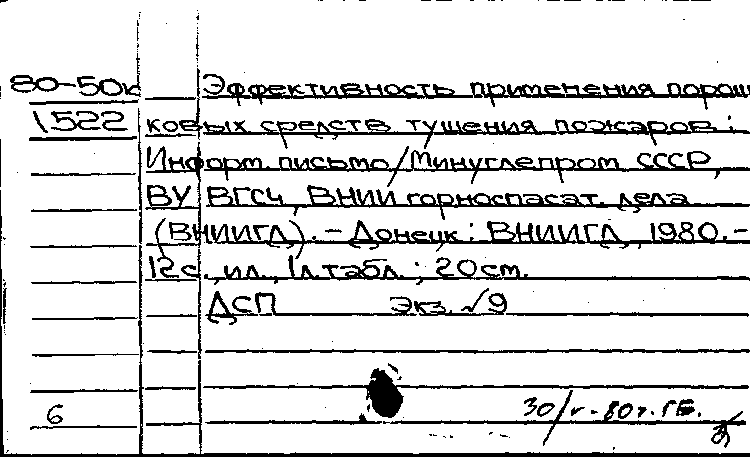 80-50к Эффективность применения порош
1522 ковых средств тушения пожаров :
Информ. письмо/Минуглепром СССР,
ВУ ВГСЧ, ВНИИ горноспасат. дела
(ВНИИГД). - Донецк : ВНИИГД, 1980. -
12с., ил., 1л.табл. ; 20см.
ДСП Экз. √9
6 30/V-80г. ГБ.